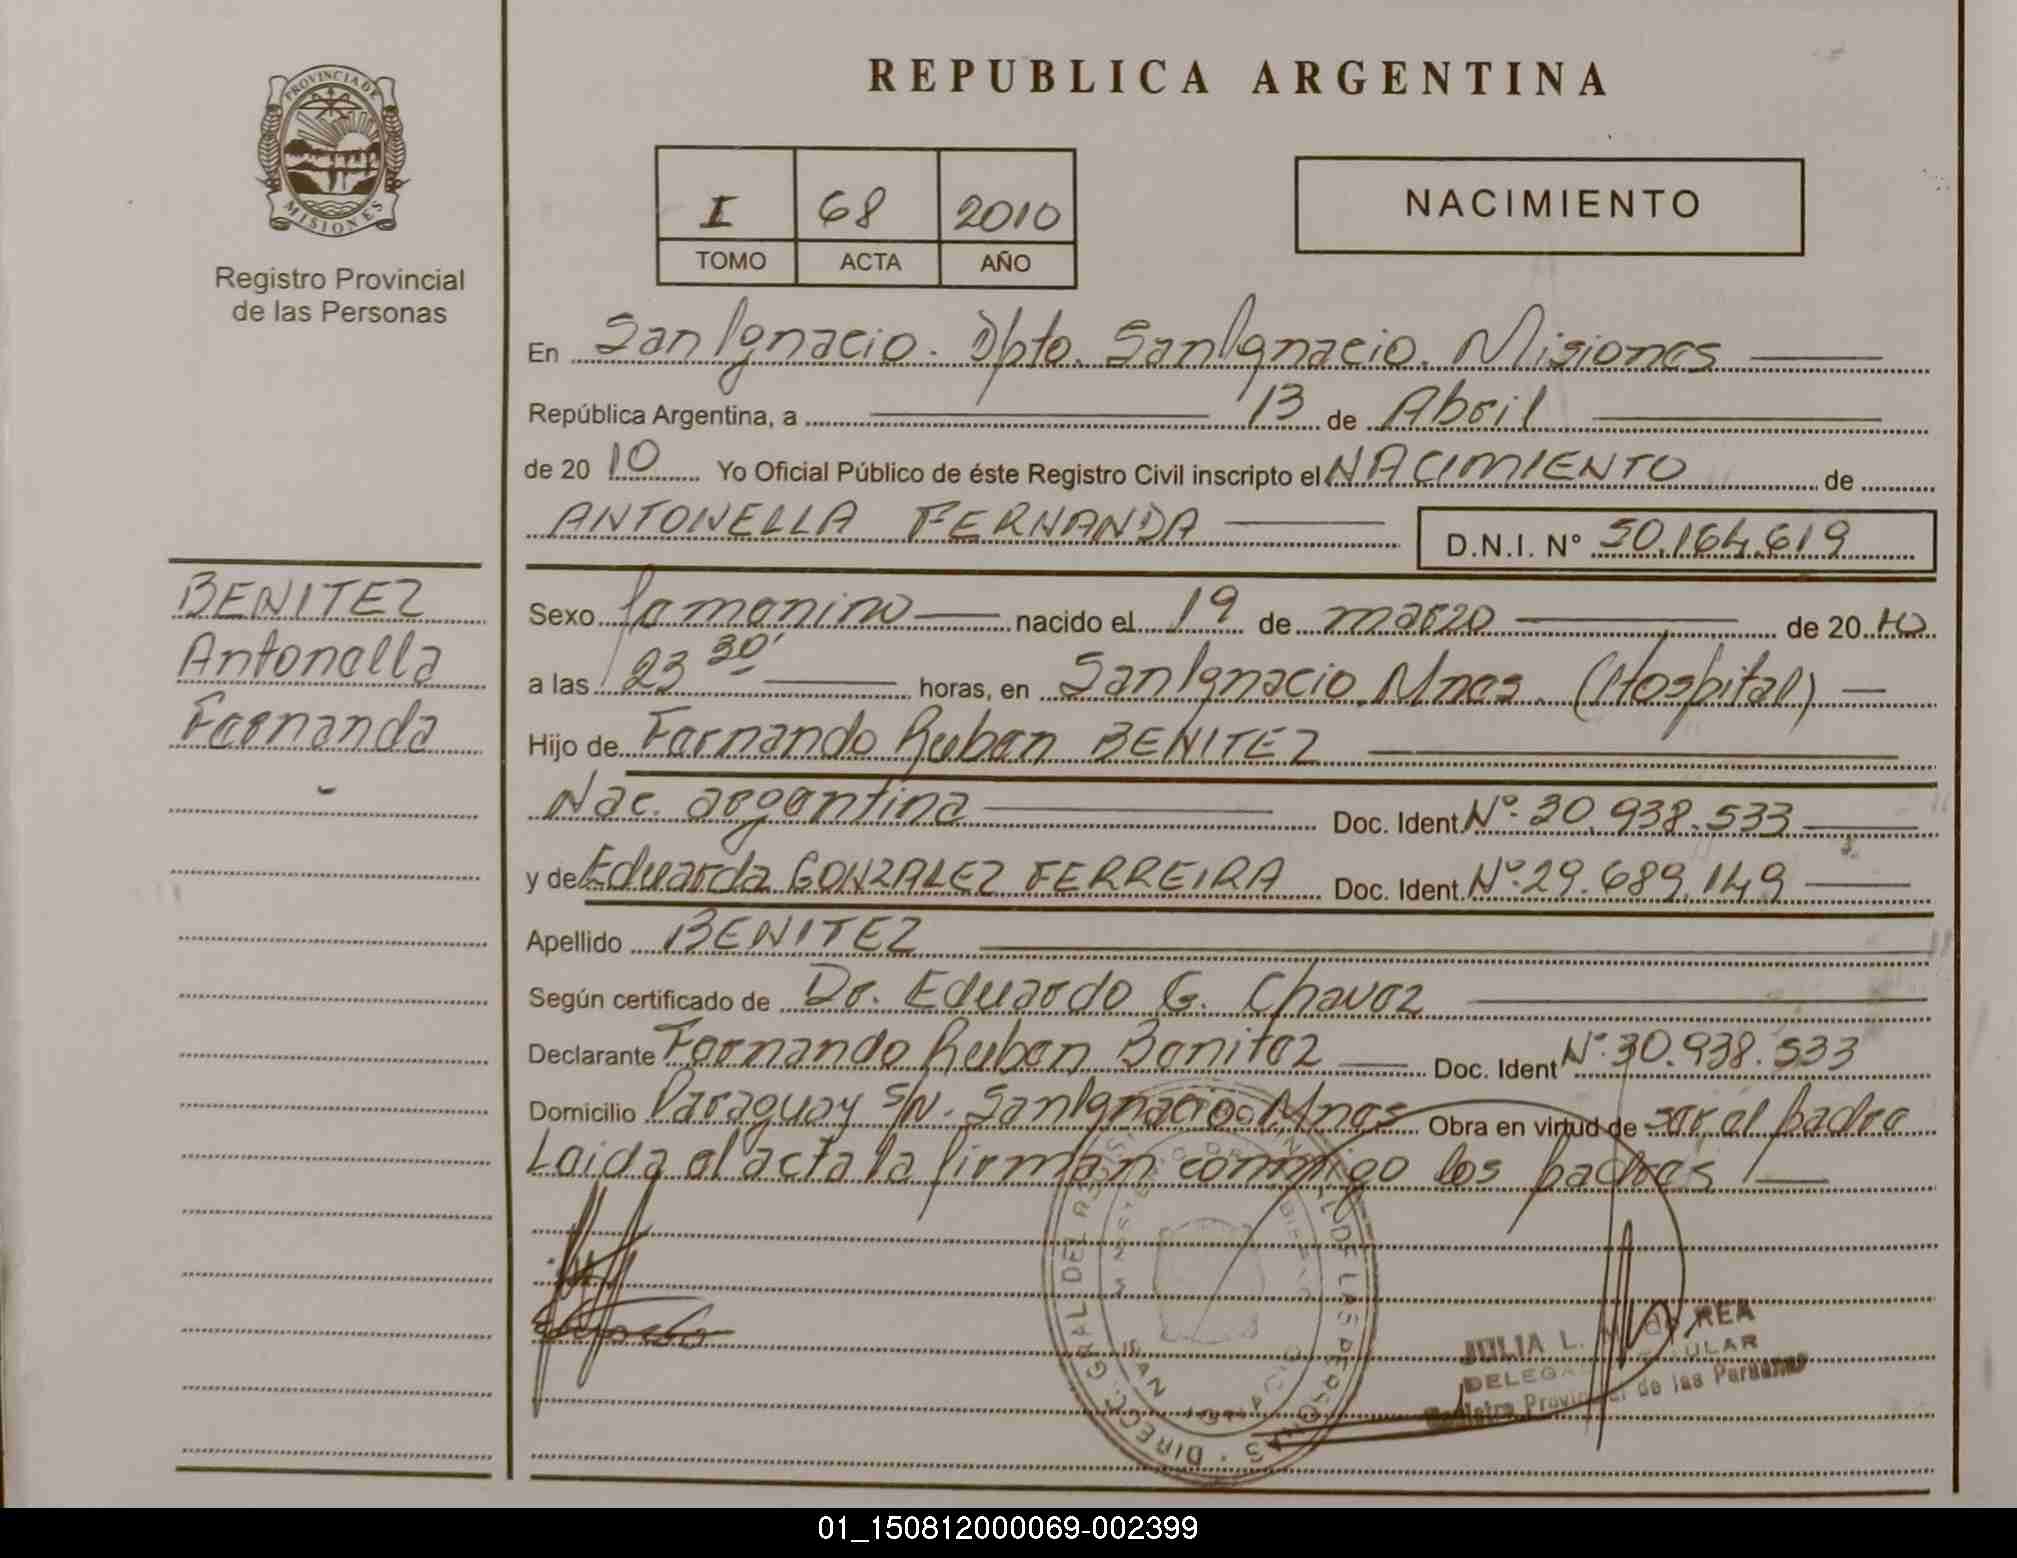 PROVINCIA DE
MISIONES
Registro Provincial
de las Personas
REPUBLICA ARGENTINA
I 68 2010
TOMO ACTA AÑO
NACIMIENTO
En San Ignacio. Dpto. San Ignacio. Misiones
República Argentina, a 13 de Abril
de 2010 Yo Oficial Público de éste Registro Civil inscripto el NACIMIENTO de
ANTONELLA FERNANDA D.N.I. Nº 50.164.619
BENITEZ
Antonella
Fernanda
Sexo femenino nacido el 19 de marzo de 2010
a las 23 30' horas, en San Ignacio Mnes. (Hospital)
Hijo de Fernando Ruben BENITEZ
Nac. argentina Doc. Ident. Nº. 30.938.533
y de Eduarda GONZALEZ FERREIRA Doc. Ident. Nº. 29.689.149
Apellido BENITEZ
Según certificado de Dr. Eduardo G. Chavez
Declarante Fernando Ruben Benitez Doc. Ident Nº. 30.938.533
Domicilio Paraguay S/N. San Ignacio Mnes Obra en virtud de ser el padre
Leida el acta la firman conmigo los padres
DIRECC. GRAL DEL REGIST DE LAS PERSONAS
SAN
JULIA L. de REA
Registro Provincial de las Personas
01_150812000069-002399